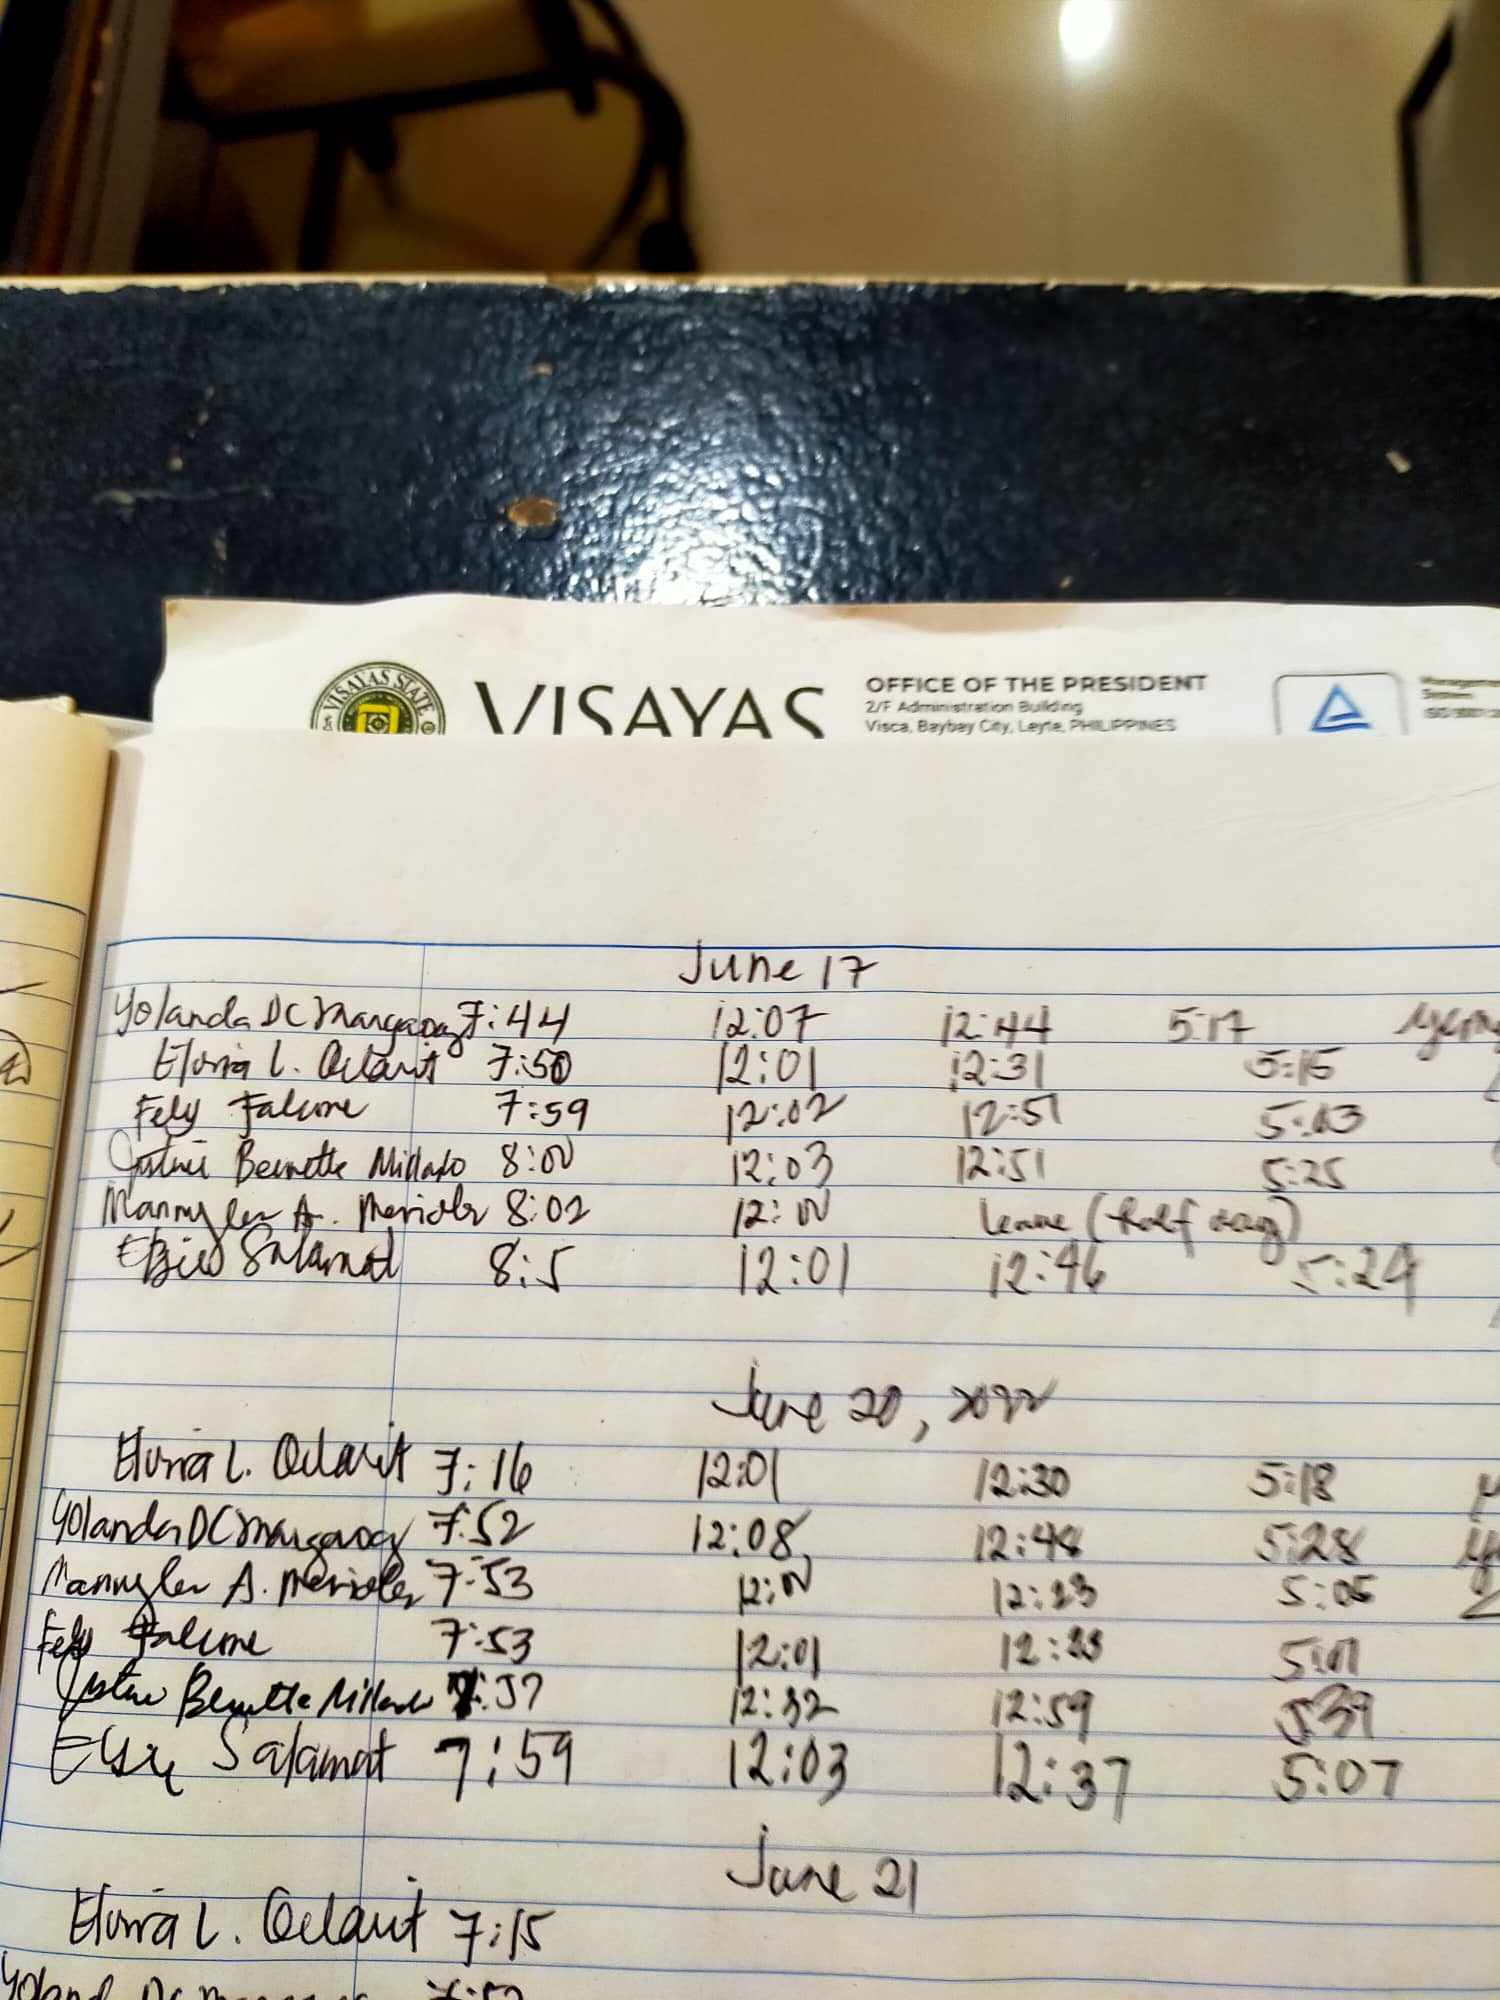 VISAYAS STATE
VISAYAS
OFFICE OF THE PRESIDENT
2/F Administration Building
Visca, Baybay City, Leyte, PHILIPPINES
June 17
Yolanda DC Mangaoang 7:44 12:07 12:44 5:17
L. 7:50 12:01 12:31 5:15
Fely Falcone 7:59 12:02 12:51 5:03
Bernette Millado 8:00 12:03 12:51 5:25
A. 8:02 12:00 leave (half day)
Salamat 8:5 12:01 12:46 5:24
June 20, 2022
L. 7:16 12:01 12:30 5:18
Yolanda DC Mangaoang 7:52 12:08 12:48 5:28
A. 7:53 12:00 12:23 5:05
Fely Falcone 7:53 12:01 12:23 5:01
Bernette Millado 7:57 12:32 12:59 5:39
Salamat 7:59 12:03 12:37 5:07
June 21
L. 7:15